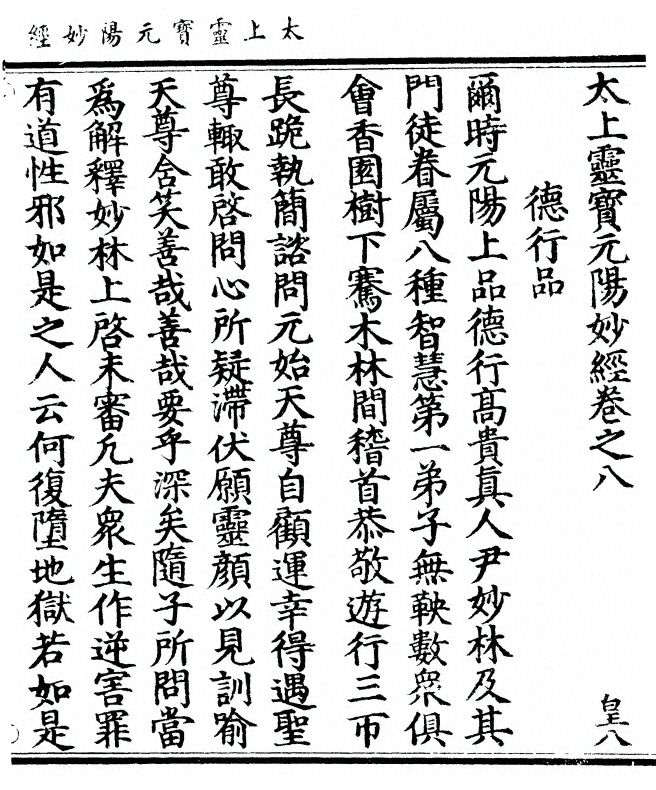 太上靈寳元陽妙經
太上靈寳元陽妙經卷之八
皇八
德行品
爾時元陽上品德行髙貴真人尹妙林及其
門徒眷屬八種智慧第一弟子無鞅數衆俱
會香園樹下騫木林間稽首恭敬遊行三帀
長跪執簡諮問元始天尊自顧運幸得遇聖
尊輙敢啓問心所疑滯伏願靈顔以見訓喻
天尊含笑善哉善哉要乎深矣隨子所問當
爲解釋妙林上啓未審凢夫衆生作逆害罪
有道性邪如是之人云何復墮地獄若如是